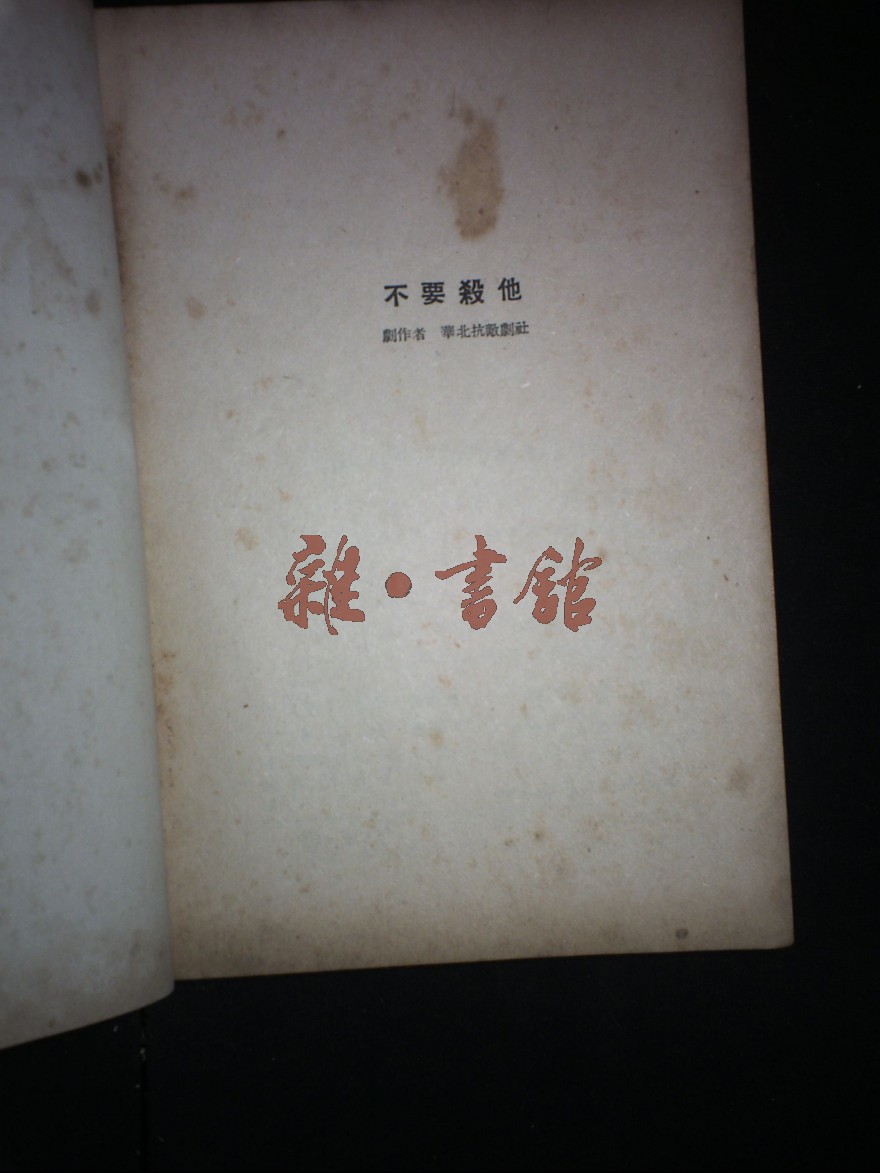 不要殺他
劇作者 華北抗敵劇社
雜·書館